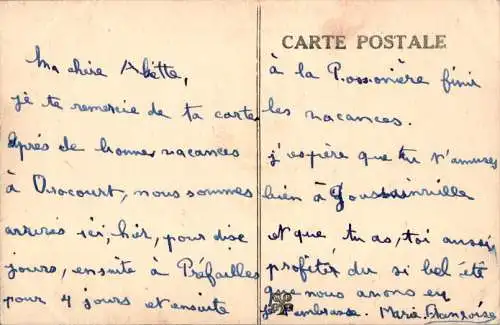 Ma chère Abette,
je te remercie de ta carte
après de bonnes vacances
à Orocourt, nous sommes
arrivés ici, hier, pour dix
jours, ensuite à Préfailles
pour 4 jours et ensuite
CARTE POSTALE
à la Possonière finir
les vacances.
j'espère que tu t'amuses
bien à Goussainville
et que tu as, toi aussi
profiter du si bel été
que nous avons eu
je t'embrasse. Marie-Françoise